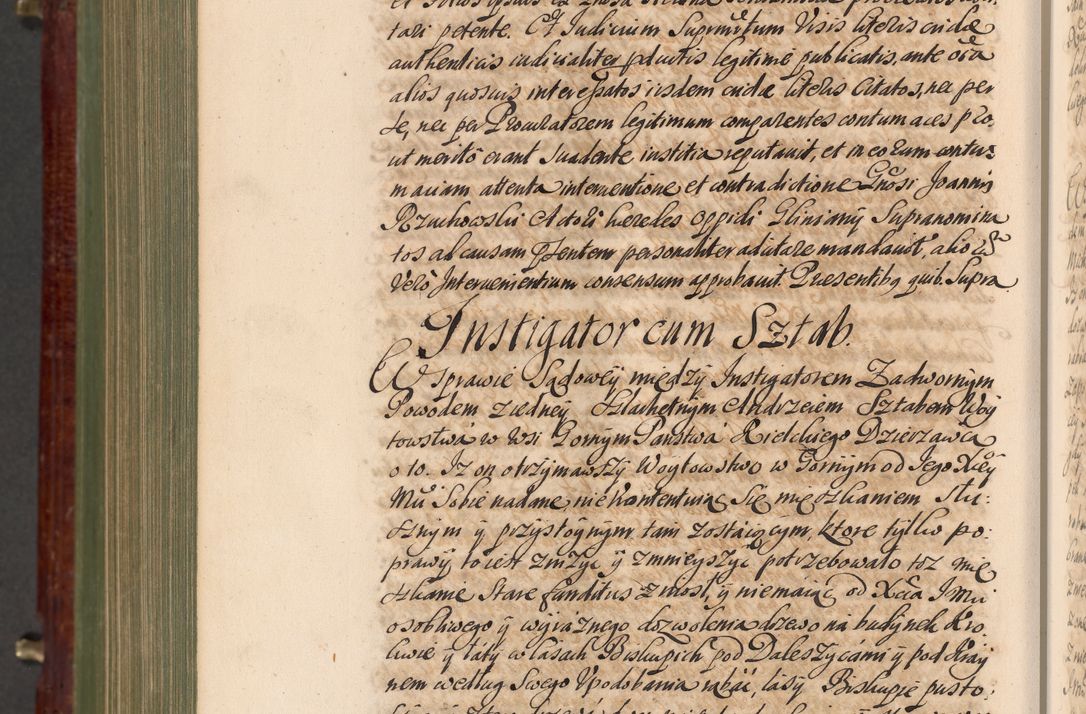 tari petente. Et Iudicium Supranotatum Visis literis cridæ
authenticis iudicialiter pductis legitimè publicatis, ante oĩa
alios quosuis interessatos iisdem cridæ literis Citatos, nec per
se, nec per Procuratorem legitimum comparentes contumaces pro
ut meritò erant Suadente iustitia reputauit, et in eorum contu
maciam attenta interuentione et contradictione Gñosi Joannis
Rzuchowski Actoli hæredes oppidi Gliniany Supranomina
tos ad causam pñtem personaliter adcitare mandauit, alio
Verò Interuenientium consensum approbauit. Præsentibq quib. Supra
Instigator cum Sztab.
W Sprawie Sądowey między Instigatorem Zadwornym
Powodem z iedney Szlachetnym Andrzeiem Sztabem Woy
towstwa w Wsi Gornym Państwa Kielckiego Dzierzawcą
o to. Iz on otrzymawszy Woytowstwo w Gornym od Jego Xcey
Mći Sobie nadane, nie kontentuiąc Się mięszkaniem słu:
sznym y przystoynym tam zostaiącym, ktore tylko po:
prawy to iest znizyć y zmnieyszyć potrzebowało toz mię
szkanie Stare funditus zniosł, y niemaiąc od Xcia Jmći
osobliwego y wyraznego dozwolenia drzewo na budynek Kro:
kwie y łaty w lasach Biskupich pod Daleszycami y pod Kray
nem według Swego Vpodobania rąbać, lasy Biskupie pusto: